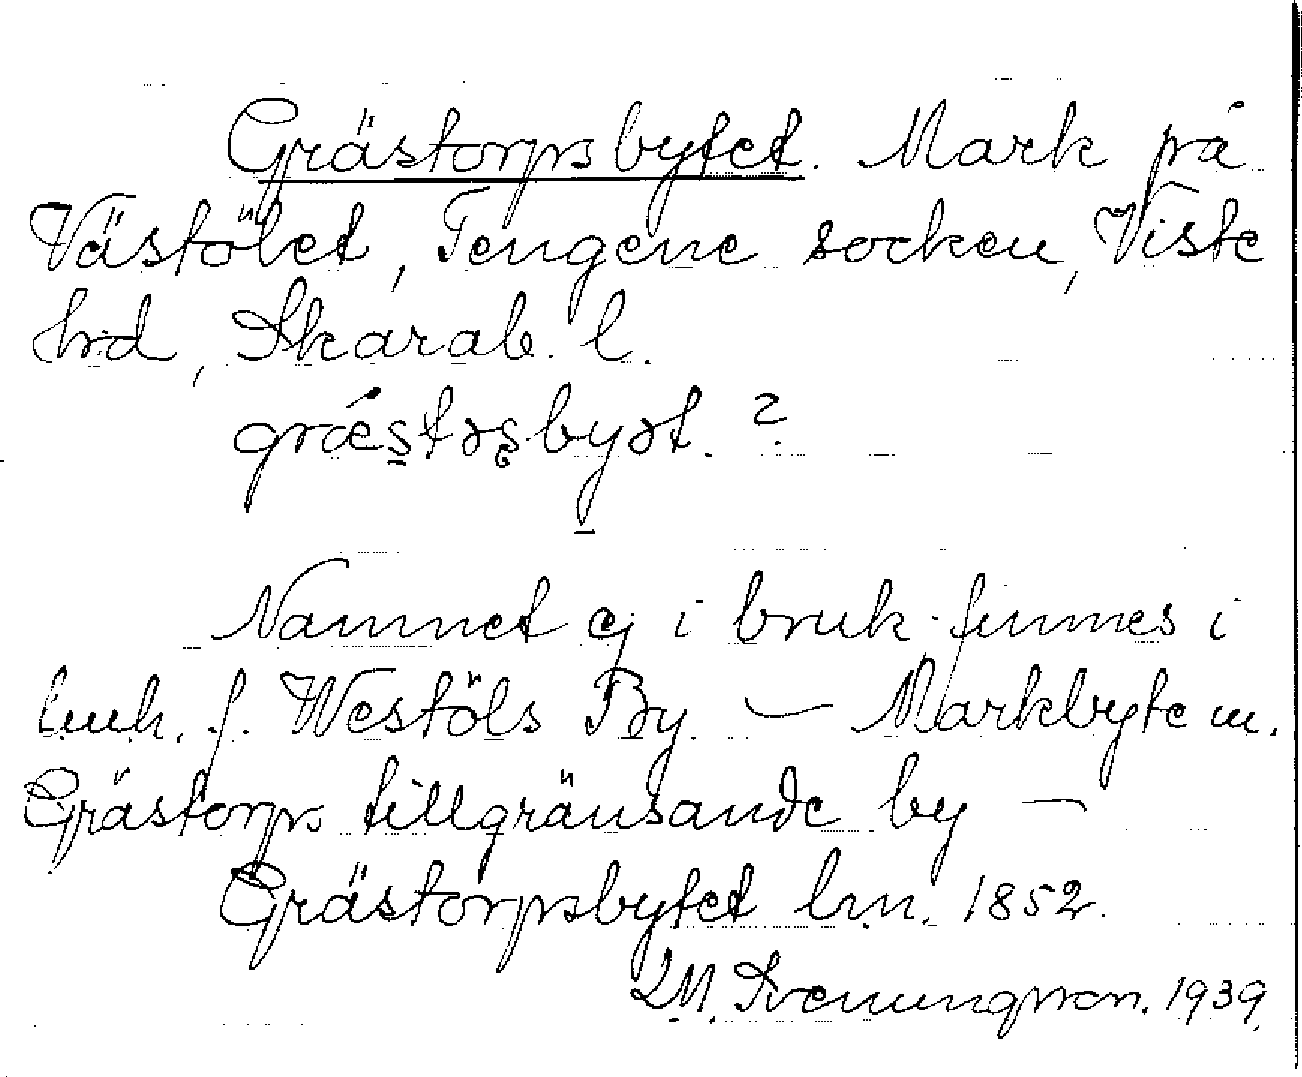 Grästorpsbytet. Mark på
Västölet, Tengene socken, Viste
hrd, Skarab. l.
græ̀stɔʂbyət. ?
Namnet ej i bruk finnes i
lmh. f. Westöls By. — Markbyte m.
Grästorps tillgränsande by —
Grästorpsbytet lm. 1852.
Svenungsson. 1939.